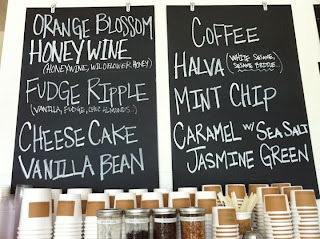 ORANGE BLOSSOM
HONEY WINE
(HONEYWINE, WILDFLOWER HONEY)
FUDGE RIPPLE
(VANILLA, FUDGE, CHOC ALMONDS)
CHEESE CAKE
VANILLA BEAN
COFFEE
HALVA (WHITE SESAME,
SESAME BRITTLE)
MINT CHIP
CARAMEL W/ SEA SALT
JASMINE GREEN